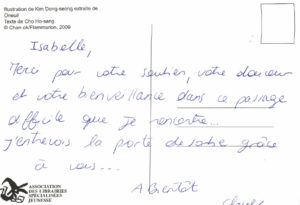 Illustration de Kim Dong-seong extraite de
Texte de Cho Ho-sang.
© Chan ok/Flammarion, 2009
Isabelle,
Merci pour votre soutien, votre douceur
et votre bienveillance dans ce passage
difficile que je rencontre...
j'entrevois la porte de sortie grâce
à vous...
A Bientôt
ASSOCIATION
DES LIBRAIRIES
SPÉCIALISÉES
JEUNESSE